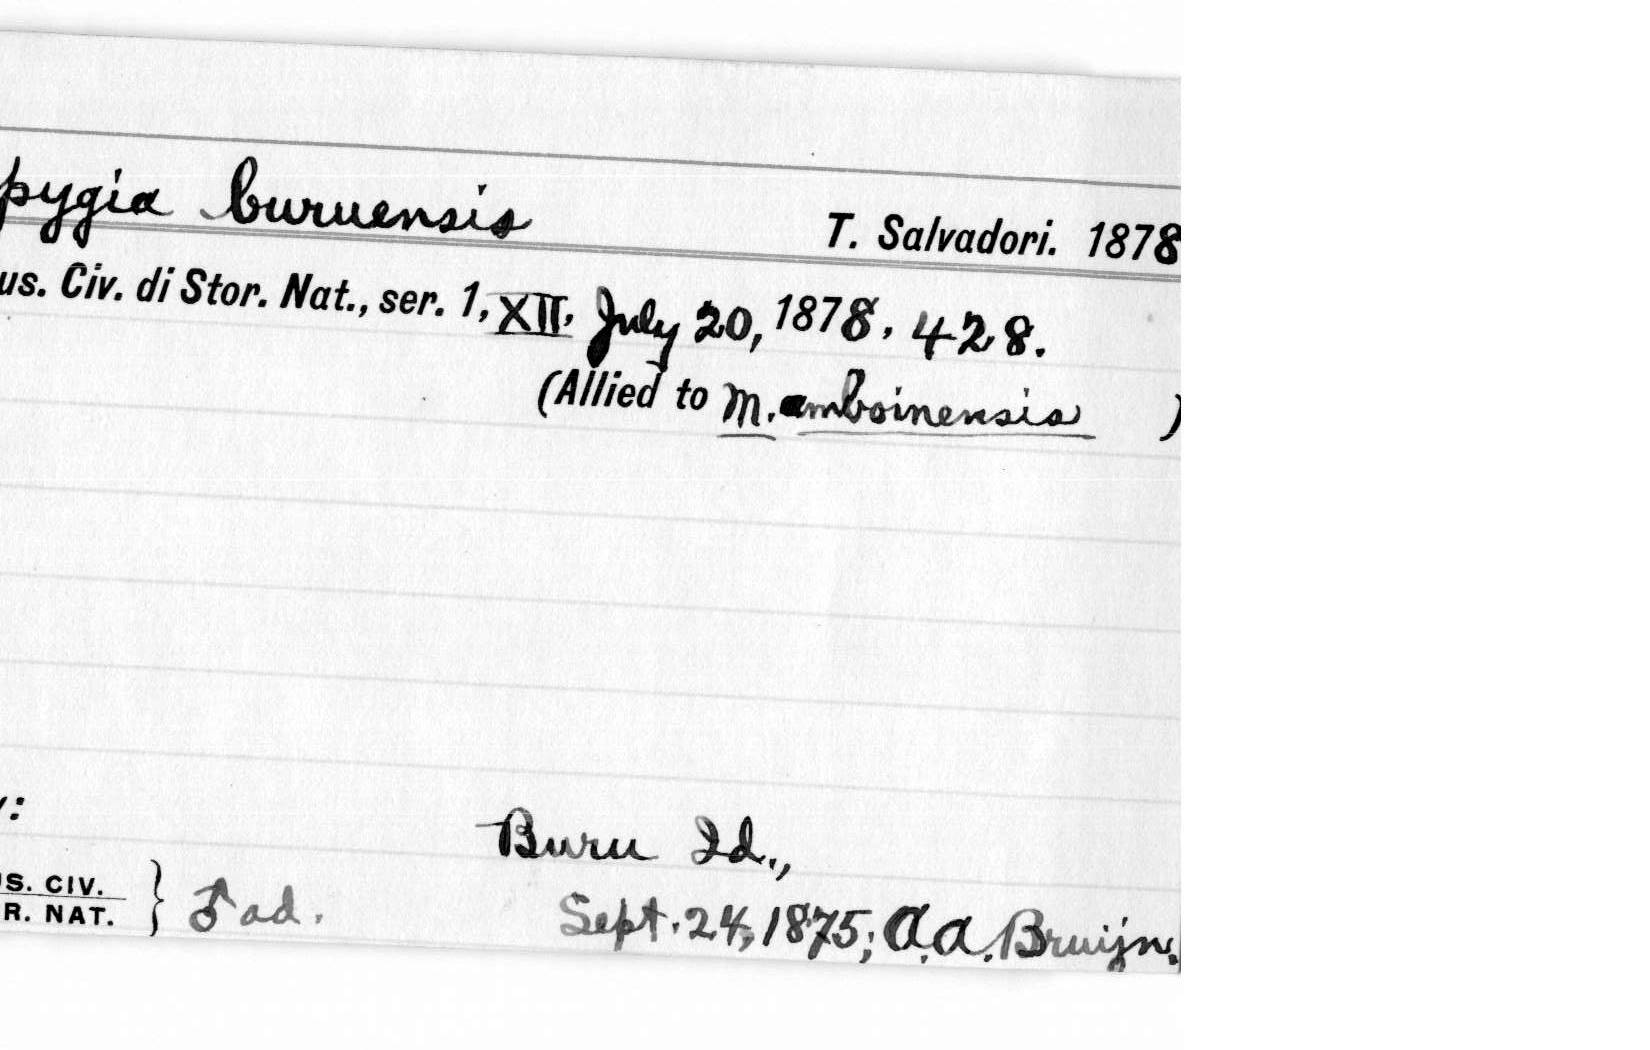 pygia buruensis T. Salvadori. 1878
us. Civ. di Stor. Nat., ser. 1, XII, July 20, 1878, 428.
(Allied to M. amboinensis )
:
S. CIV.
R. NAT. } ♂ ad.
Buru Id.,
Sept. 24, 1875; A. A. Bruijn.